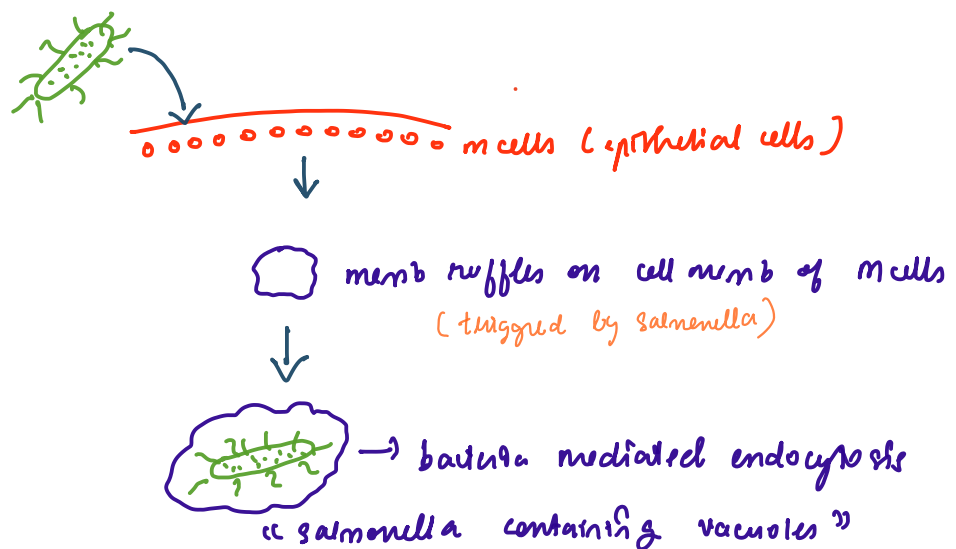 m cells (epithelial cells)
memb ruffles on cell memb of M cells
(triggred by salmenella)
bacteria mediated endocytosis
"salmonella containing vacuoles"